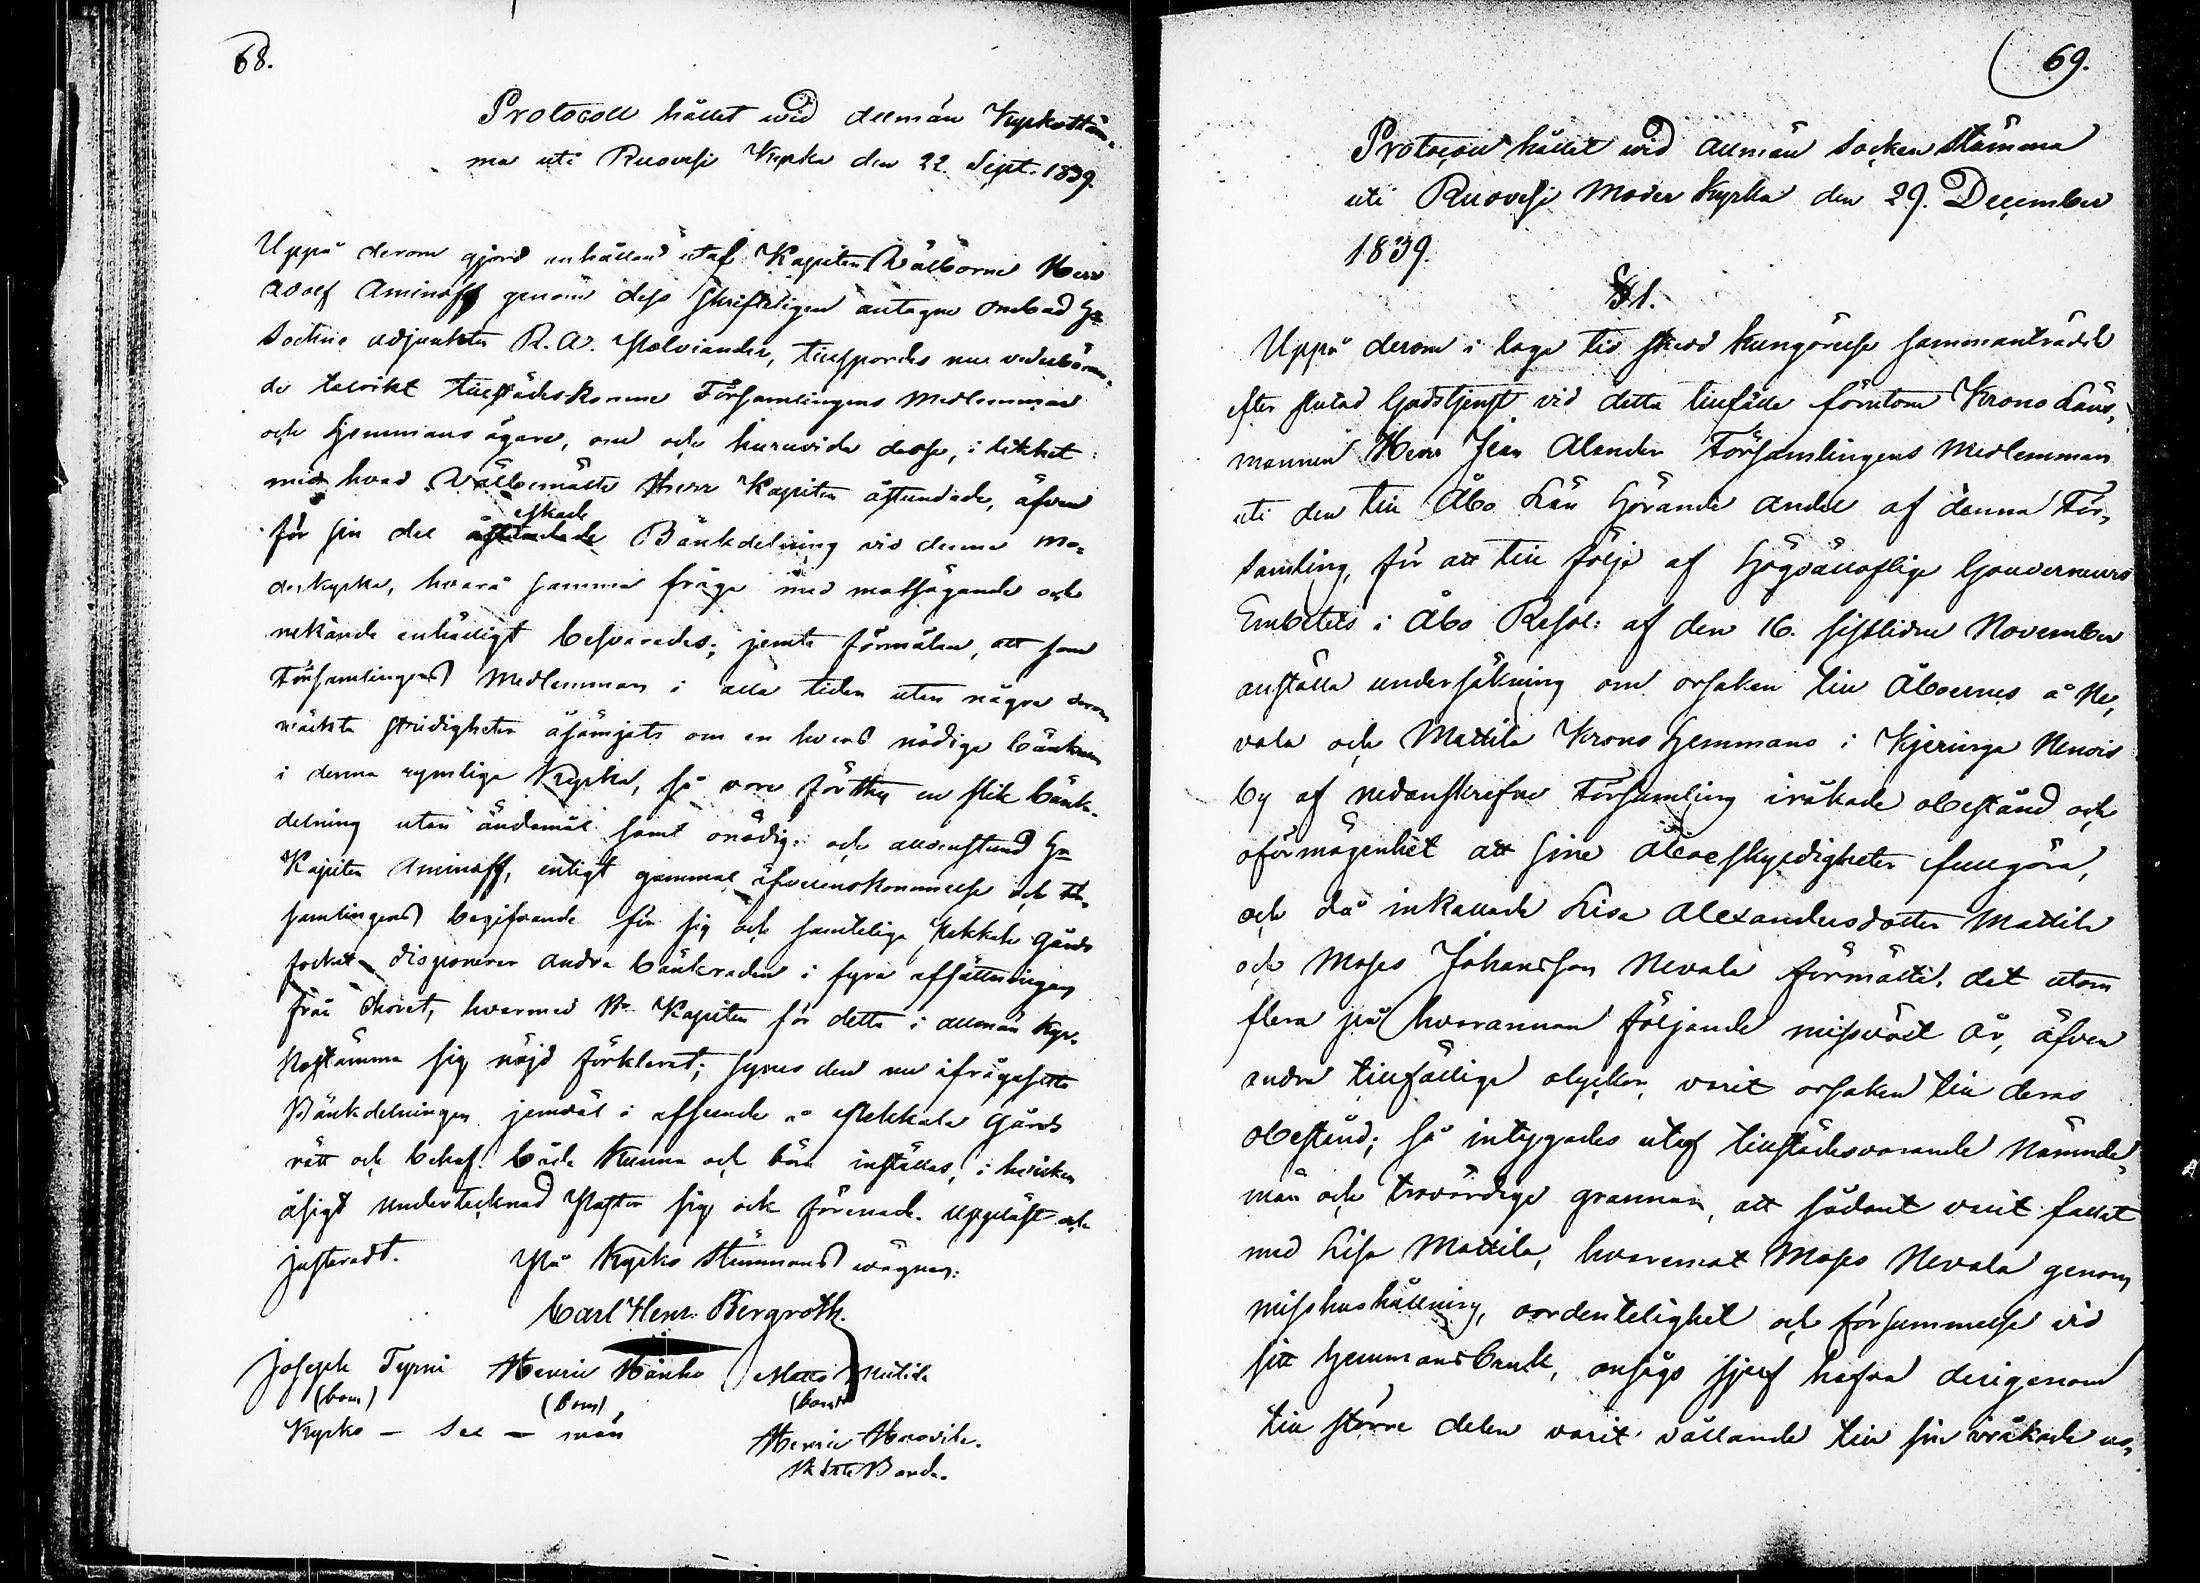 68.
Protocoll hållet wid allmän Kyrkostäm-
ma uti Ruovesi Kyrka den 22. Sept. 1839.
Uppå derom gjord anhållan utaf Kapiten Välborne Herr
Adolf Aminoff genom dess skrifteligen antagne ombud Hr
Sockne adjunkten R. A. Holviander, tillspordes nu vederböran-
de talrikt tillstädeskomne Församlingens Medlemmar
och Hemmans ägare, om och huruvida desse, i likhet
med hvad Välbemälte Herr Kapiten åstundade, äfven
för sin del åstundade äskade Bänkdelning vid denna Mo-
derkyrka, hvarå samma fråga med motsägande och
nekande enhälligt besvarades; jemte förmälan, att som
Församlingens Medlemmar i alla tider utan några derom
väckte stridigheter åsämjats om en hvars nödiga bänkrum
i denna rymliga Kyrka, så vore förthy en slik bänk-
delning utan ändamål samt onödig: och allenstund Hr
Kapiten Aminoff, enligt gammal öfverenskommelse och För-
samlingens begifvande för sig och samtelige Pekkala Gårds
folket disponerar andra bänkraden i fyra afsättningar
från Choret, hvarmed Hr Kapiten för detta i allmän Kyr-
kostämma sig nöjd förklarat; synes den nu ifrågasatte
Bänkdelningen jemväl i afseende å Pekkala Gårds
rätt och behof både kunna och böra inställas, i hvilken
åsigt undertecknad Pastor sig ock förenade. Uppläst och
justeradt. På Kyrko Stämmans vägnar:
Carl Henr. Bergroth.
Joseph Tyrni Henric Hänho Matts Mutila
(bom) (bom) (bom)
Kyrko - Sex - män Henric
Bonde.
69.
Protocoll hållet wid Allmän Socken Stämma
uti Ruovesi Moder Kyrka den 29. December
1839.
§ 1.
Uppå derom i laga tid skedd kungörelse sammanträdde
efter slutad Gudstjenst vid detta tillfälle förutom Krono Läns-
mannen Herr Jean Alander Församlingens Medlemmar
uti den till Åbo Län hörande andel af denna För-
samling, för att till följe af Högvällofliga Gouverneurs
Embetets i Åbo Resol: af den 16. sistlidne November
anställa undersökning om orsaken till Åboernes å Ne-
vala och Mattila Krono Hemmans i Kjeringa Nenois
by af nedanskrefne Församling iråkade obestånd och
oförmögenhet att sine Åboeskyldigheter fullgöra,
och då inkallade Lisa Alexandersdotter Mattila
och Moses Johansson Nevala förmälte, det utom
flera på hvarannan följande missväxt år, äfven
andra tillfällige olyckor, varit orsaken till deras
obestånd; så intygades utaf tillstädesvarande Nämnde-
män och trovärdige grannar, att sådant varit fallet
med Lisa Mattila, hvaremot Moses Nevala genom
misshushållning, oordentelighet och försummelse vid
sitt Hemmansbruk, ansågs sjelf hafva derigenom
till större delen varit vållande till sin iråkade